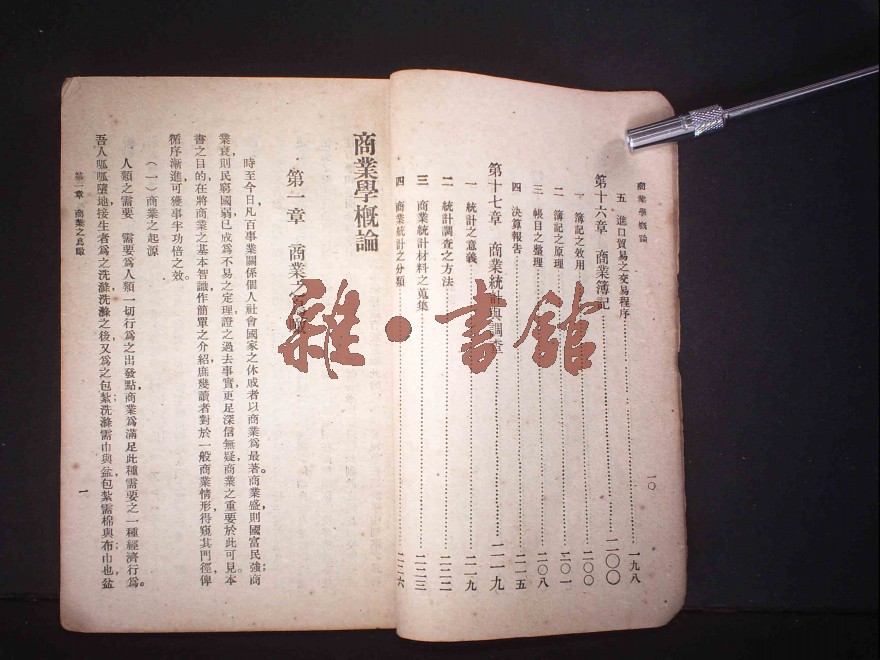 商業學概論
一〇
五 進口貿易之交易程序……一九八
第十六章 商業簿記……二〇〇
一 簿記之效用……二〇〇
二 簿記之原理……二〇一
三 帳目之整理……二〇八
四 決算報告……二一五
第十七章 商業統計與調查……二一九
一 統計之意義……二一九
二 統計調查之方法……二二二
三 商業統計材料之蒐集……二二三
四 商業統計之分類……二二六
商業學概論
第一章 商業之
時至今日，凡百事業關係個人社會國家之休戚者以商業爲最著。商業盛，則國富民強；商
業衰，則民窮國弱，已成爲不易之定理，證之過去事實，更足深信無疑，商業之重要於此可見。本
書之目的在將商業之基本智識作簡單之介紹，庶幾讀者對於一般商業情形得窺其門徑，俾
循序漸進可獲事半功倍之效。
（一）商業之起源
人類之需要 需要爲人類一切行爲之出發點，商業爲滿足此種需要之一種經濟行爲。
吾人呱呱墮地，接生者爲之洗滌，洗滌之後又爲之包紮；洗滌需巾與盆，包紮需棉與布；巾也，盆
第一章 商業之
一
雜·書館